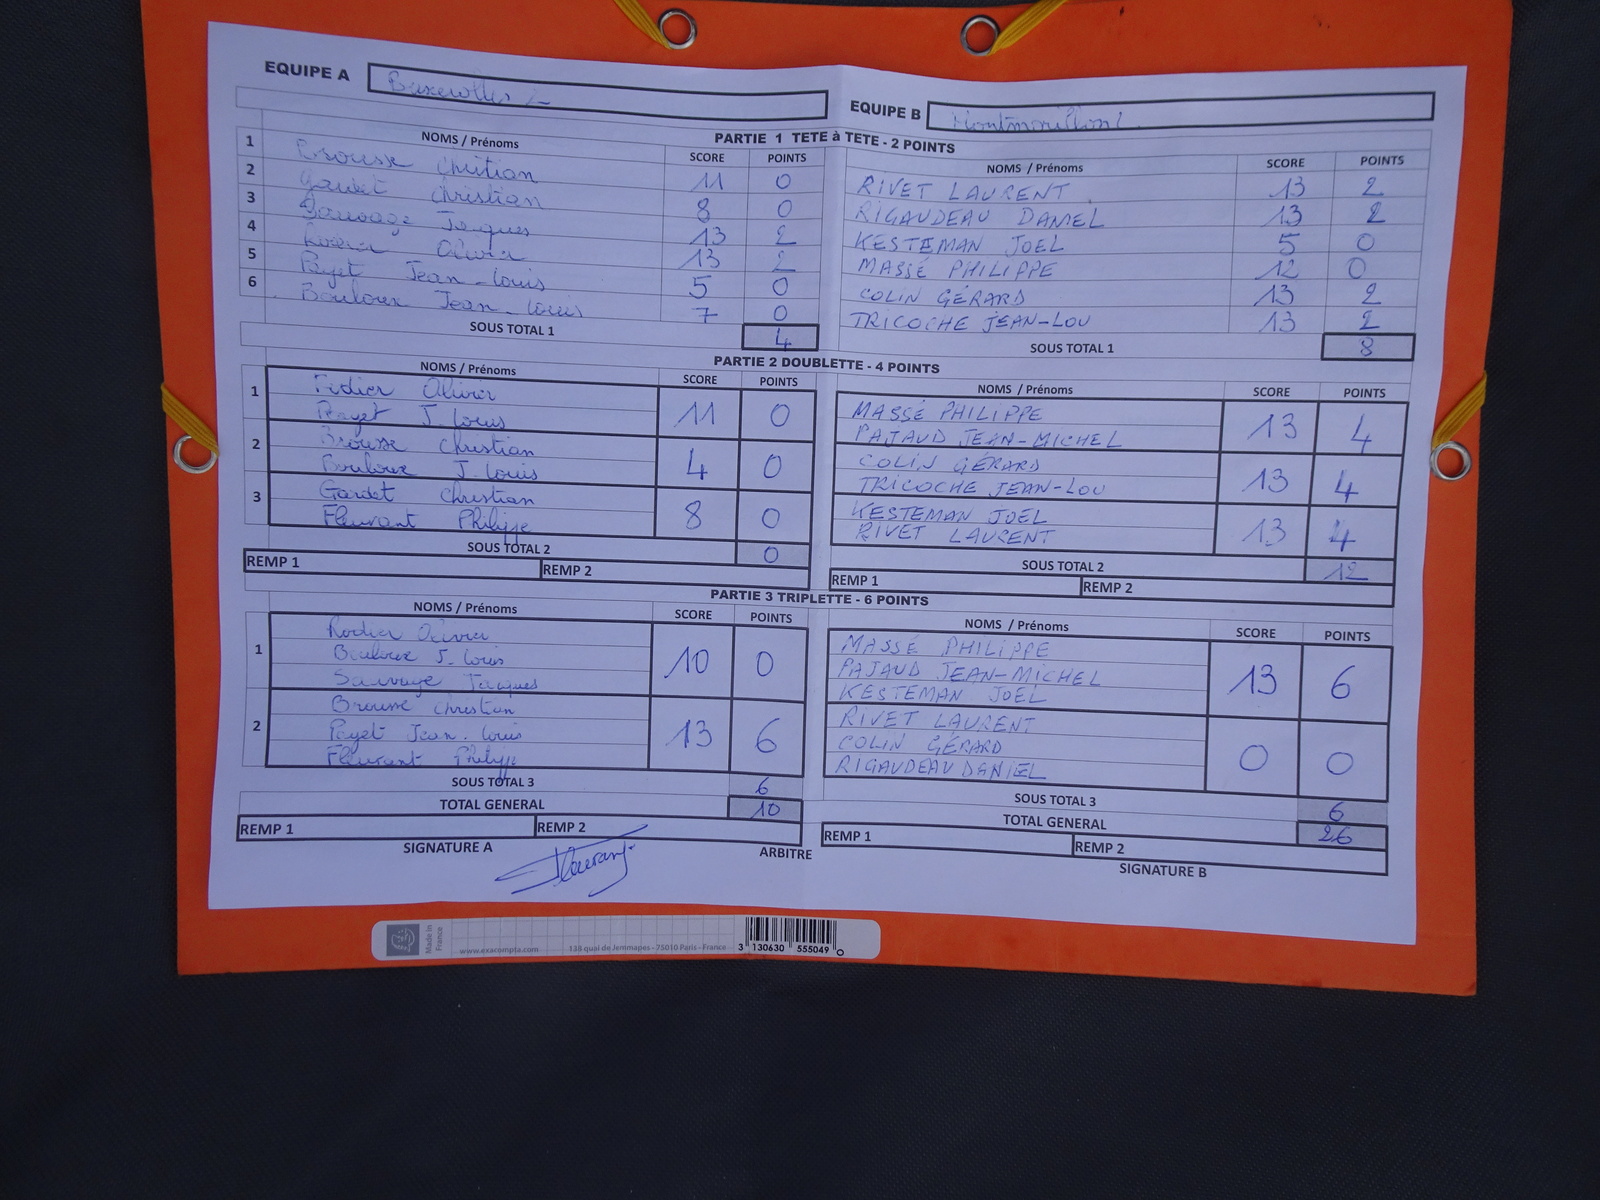 EQUIPE A Buxerolles 2
EQUIPE B Montmorillon 1
PARTIE 1 TETE à TETE - 2 POINTS
NOMS / Prénoms SCORE POINTS NOMS / Prénoms SCORE POINTS
1 Brousse Christian 11 0 RIVET LAURENT 13 2
2 Gardet Christian 8 0 RIGAUDEAU DANIEL 13 2
3 Sauvage Jacques 13 2 KESTEMAN JOEL 5 0
4 Rodier Olivier 13 2 MASSÉ PHILIPPE 12 0
5 Payet Jean-Louis 5 0 COLIN GÉRARD 13 2
6 Bouloux Jean-Louis 7 0 TRICOCHE JEAN-LOU 13 2
SOUS TOTAL 1 4 SOUS TOTAL 1 8
PARTIE 2 DOUBLETTE - 4 POINTS
NOMS / Prénoms SCORE POINTS NOMS / Prénoms SCORE POINTS
1 Olivier 11 0 MASSÉ PHILIPPE 13 4
Payet J. Louis PAJAUD JEAN-MICHEL
2 Brousse Christian 4 0 COLIN GÉRARD 13 4
Bouloux J. Louis TRICOCHE JEAN-LOU
3 Gardet Christian 8 0 KESTEMAN JOEL 13 4
Fleurant Philippe RIVET LAURENT
SOUS TOTAL 2 0 SOUS TOTAL 2 12
REMP 1 REMP 2 REMP 1 REMP 2
PARTIE 3 TRIPLETTE - 6 POINTS
NOMS / Prénoms SCORE POINTS NOMS / Prénoms SCORE POINTS
1 Rodier Olivier 10 0 MASSÉ PHILIPPE 13 6
Bouloux J. Louis PAJAUD JEAN-MICHEL
Sauvage Jacques KESTEMAN JOEL
2 Brousse Christian 13 6 RIVET LAURENT 0 0
Payet Jean-Louis COLIN GÉRARD
Fleurant Philippe RIGAUDEAU DANIEL
SOUS TOTAL 3 6 SOUS TOTAL 3 6
TOTAL GENERAL 10 TOTAL GENERAL 26
REMP 1 REMP 2 REMP 1 REMP 2
SIGNATURE A ARBITRE SIGNATURE B
Made in France
www.exacompta.com 138 quai de Jemmapes - 75010 Paris - France
3 130630 555049 0